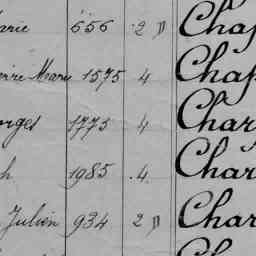 arie 656 2 D Chap
erre Marie 1575 4 Chap
orges 1775 4 Char
h 1985 4. Char
Julien 934 2 D Char